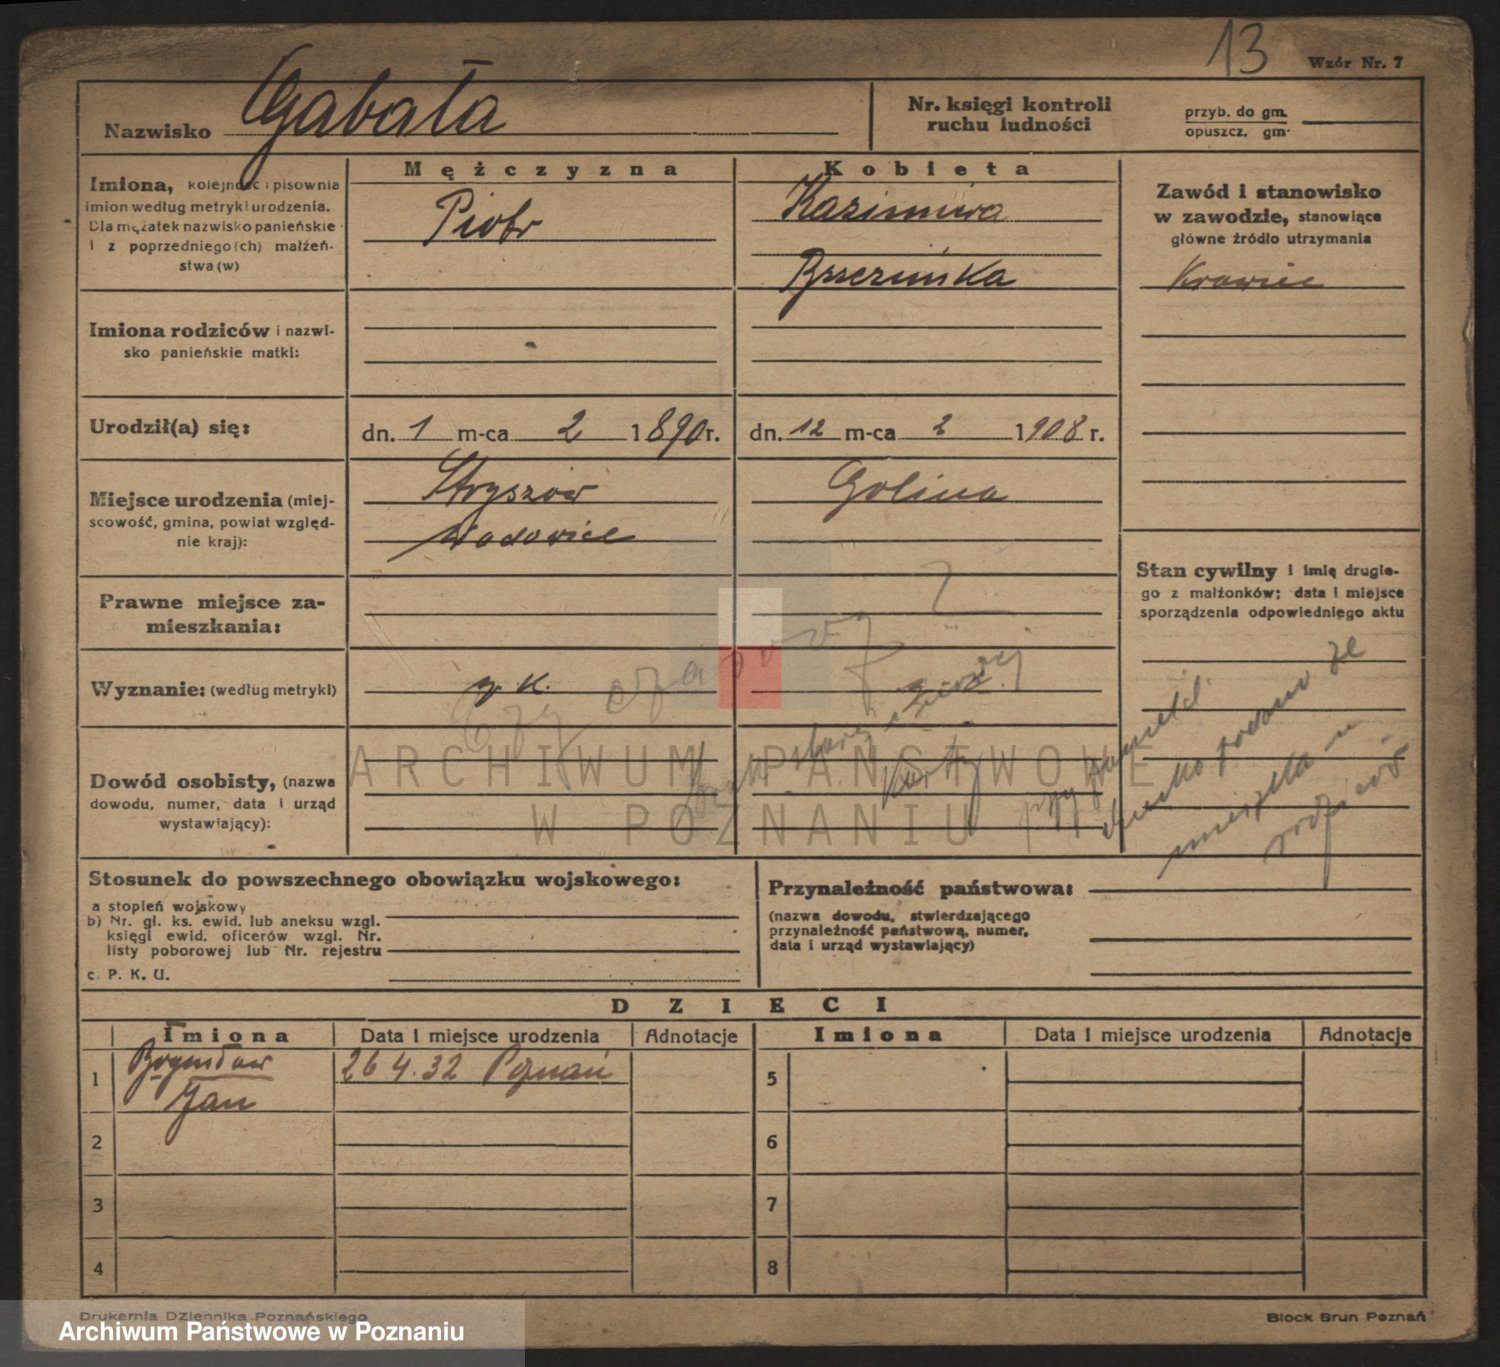 13
Wzór Nr. 7
Nazwisko Gabała
Nr. księgi kontroli
ruchu ludności
przyb. do gm.
opuszcz. gm.
Mężczyzna
Kobieta
Imiona, kolejność i pisownia
imion według metryki urodzenia.
Dla mężatek nazwisko panieńskie
i z poprzedniego(ch) małżeń-
stwa(w)
Piotr
Kazimiera
Brzezińska
Zawód i stanowisko
w zawodzie, stanowiące
główne źródło utrzymania
Krawiec
Imiona rodziców i nazwi-
sko panieńskie matki:
Urodził(a) się:
dn. 1 m-ca 2 1890 r.
dn. 12 m-ca 2 1908 r.
Miejsce urodzenia (miej-
scowość, gmina, powiat względ-
nie kraj):
Stryszów
Wadowice
Golina
Stan cywilny i imię drugie-
go z małżonków; data i miejsce
sporządzenia odpowiedniego aktu
Prawne miejsce za-
mieszkania:
Wyznanie: (według metryki)
rz k.
Dowód osobisty, (nazwa
dowodu, numer, data i urząd
wystawiający):
dziecko podano że
mieszka u
rodziców
ARCHIWUM PAŃSTWOWE
W POZNANIU
Stosunek do powszechnego obowiązku wojskowego:
a stopień wojskowy
b) Nr. gł. ks. ewid. lub aneksu wzgl.
księgi ewid. oficerów wzgl. Nr.
listy poborowej lub Nr. rejestru
c. P. K. U.
Przynależność państwowa:
(nazwa dowodu, stwierdzającego
przynależność państwową, numer,
data i urząd wystawiający)
DZIECI
Imiona Data i miejsce urodzenia Adnotacje
Imiona Data i miejsce urodzenia Adnotacje
1 Bogusław
Jan
26 4.32 Poznań
5
2
6
3
7
4
8
Drukarnia Dziennika Poznańskiego
Block Brun Poznań
Archiwum Państwowe w Poznaniu